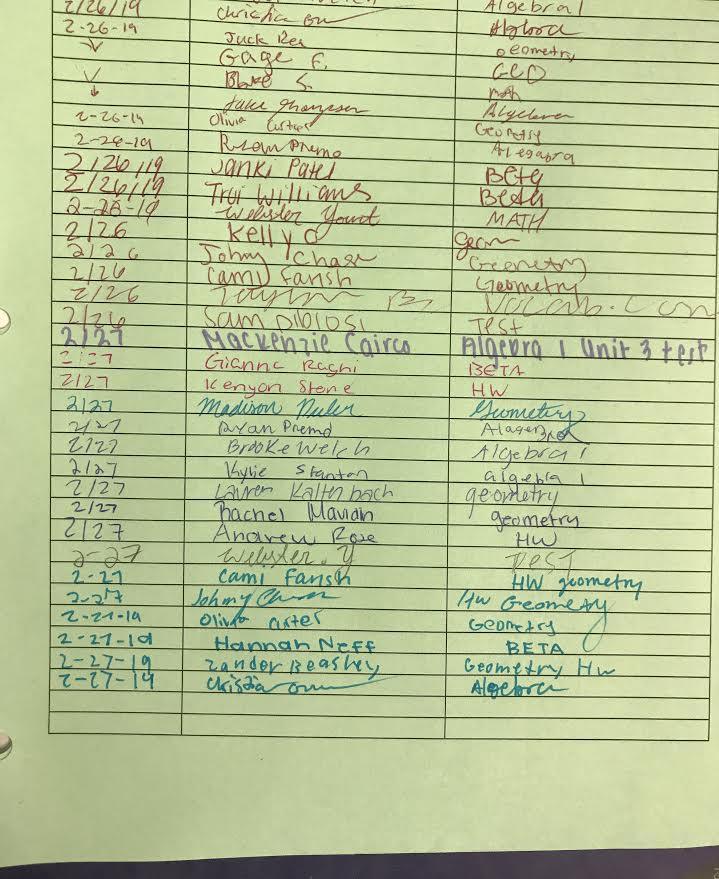 2/26/19 Algebra1
2-26-19 Christia Algebra
Jack Rex Geometry
Gage F. GEO
Blake S.
Jake Thompson Algebra
2-26-19 Olivia Custer Geometry
2-26-19 Ryan Premo Alegabra
2/26/19 Janki Patel Beta
2/26/19 Troi Williams Beta
2-26-19 Webster Yount MATH
2/26 Kelly C geom
2/26 Johny Chase Geometry
2/26 Cami Farish Geometry
2/26 Vocab.com
2/26 Sam Dibiosi Test
2/27 Mackenzie Cairco Algebra 1 Unit 3 test
2/27 Gianna Raghi BETA
2/27 Kenyon Stone HW
2/27 Madison Geometry
2/27 Ryan Premo
2/27 Brooke Welch Algebra 1
2/27 Kylie Stanton algebra 1
2/27 Lauren Kaltenbach geometry
2/27 Rachel Mavian geometry
2/27 Andrew Rose HW
2-27 Webster. Y TEST
2-27 Cami Farish HW geometry
2-27 Johny HW Geometry
2-27-19 Olivia Custer Geometry
2-27-19 Hannah Neff BETA
2-27-19 Zander Beasley Geometry HW
2-27-19 Christia Algebra